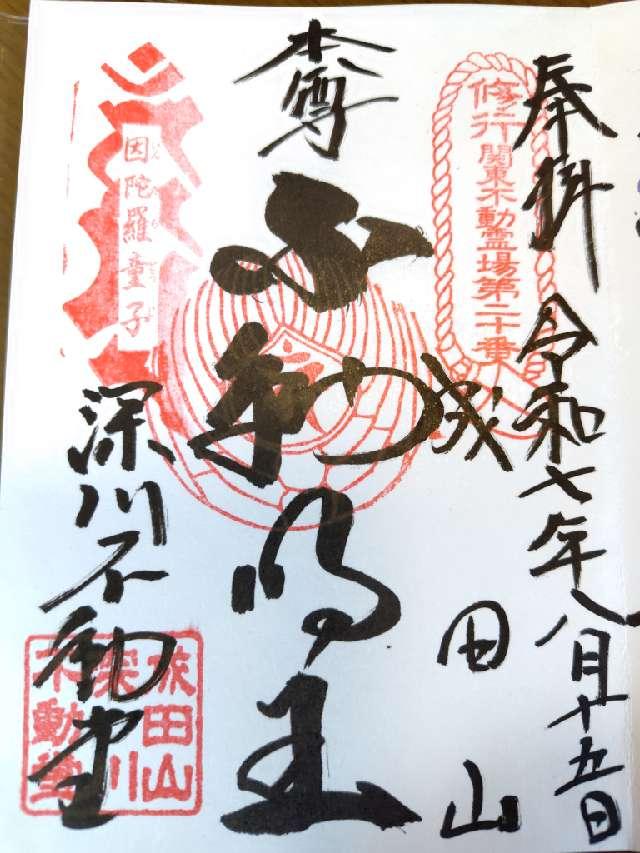 奉拝
令和七年八月十五日
修行関東不動霊場第二十番
成田山
本尊
不動明王
因陀羅童子
深川不動堂
成田山
深川
不動堂